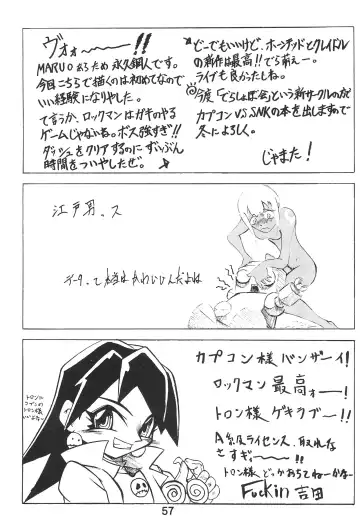 ヴォォ〜〜〜!!
MARUOあらため永久鋼人です。
今回こちらで描くのは初めてなので
いい経験になりやした。
て言うか、ロックマンはガキのやる
ゲームじゃないね。ボス強すぎ!!
ダッシュをクリアするのにずいぶん
時間をついやしたぜ。
どーでもいいけど、ホーンテッドとクレイドル
の新作は最高!!でら萌えー。
ライブも良かったしね。
今度「でらしょぼ会」という新サークル
カプコン VS SNKの本を出しますので
冬によろしく。
じゃまた!
江戸男。ス
データって本当はかわいいんだよね
カプコン様バンザーイ!
ロックマン最高ォー!
トロン様ゲキラブー!!
A級ライセンス、取れな
さすぎ。ーー!!
トロン様、どっかおちてねーかなー
Fuckin 吉田
トロンに
コブンの
トロン様
57